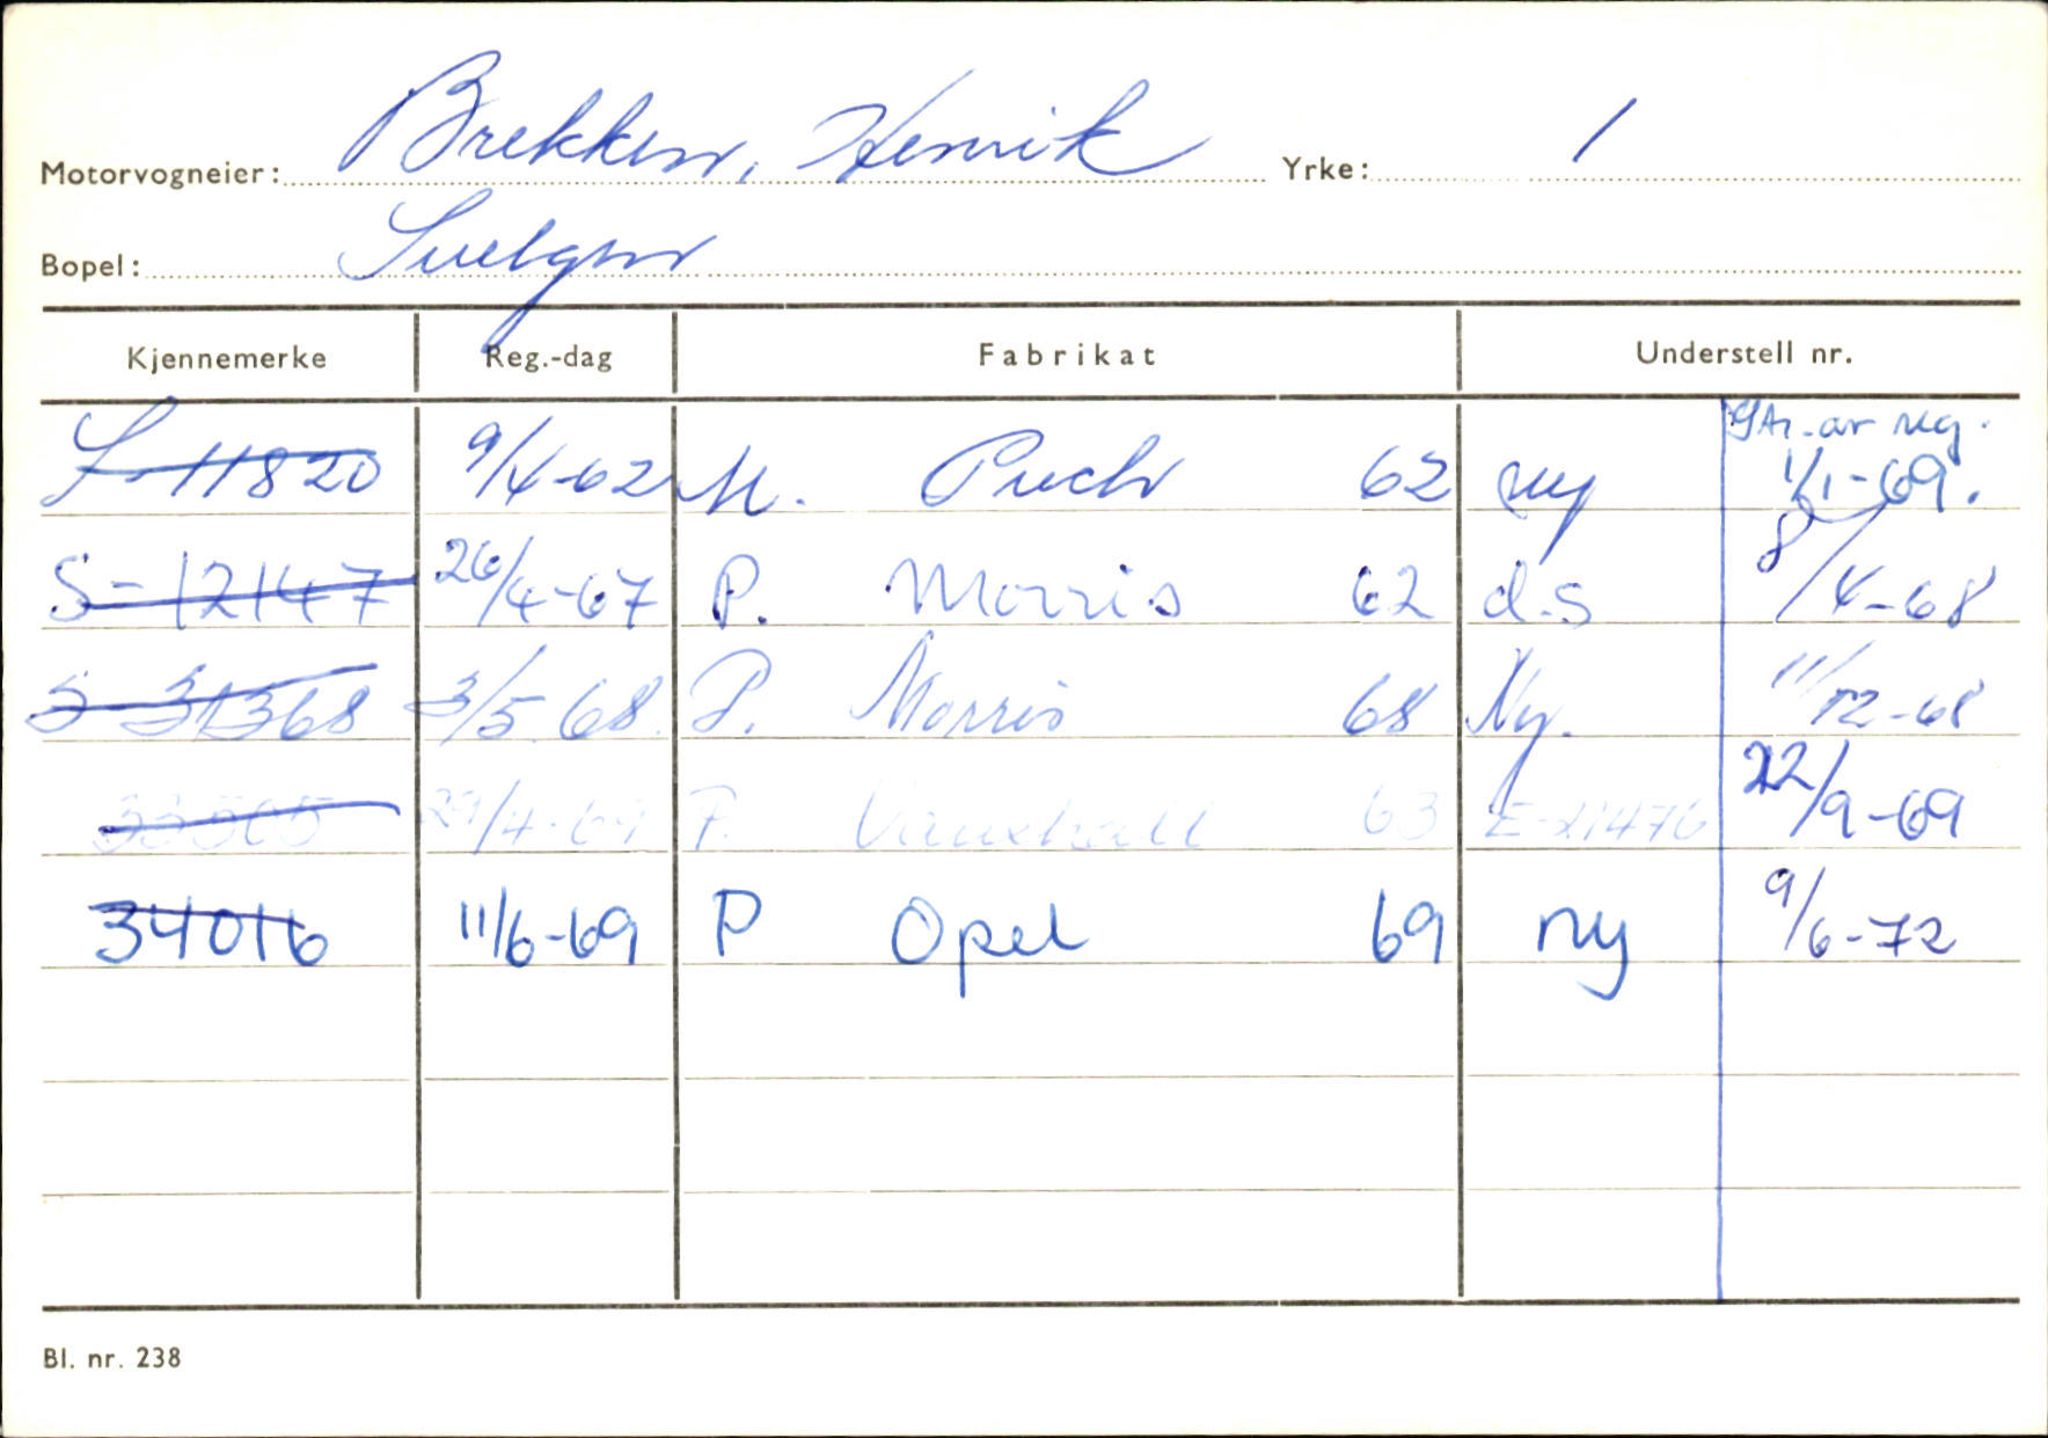 Motorvogneier: Brekken, Henrik Yrke: 1
Bopel: Svelgen
Kjennemerke Reg.-dag Fabrikat Understell nr.
av reg.
S-11820 9/4-62 M. Puch 62 ny 1/1-69.
S-12147 26/4-67 P. Morris 62 d.s 8/4-68
S-31368 3/5.68. P. Morris 68 Ny. 11/12-68
29/4-69 P. Vauxhall 63 E-21476 22/9-69
34016 11/6-69 P Opel 69 ny 9/6-72
Bl. nr. 238